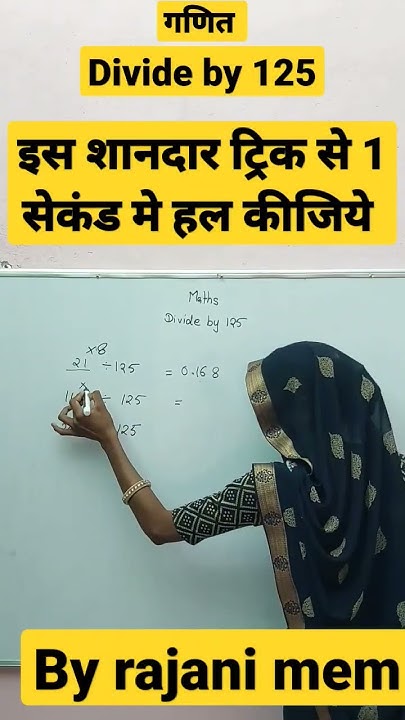 गणित
Divide by 125
इस शानदार ट्रिक से 1
सेकंड मे हल कीजिये
Maths
Divide by 125
×8
21 ÷ 125 = 0.168
×
÷ 125 =
125
By rajani mem